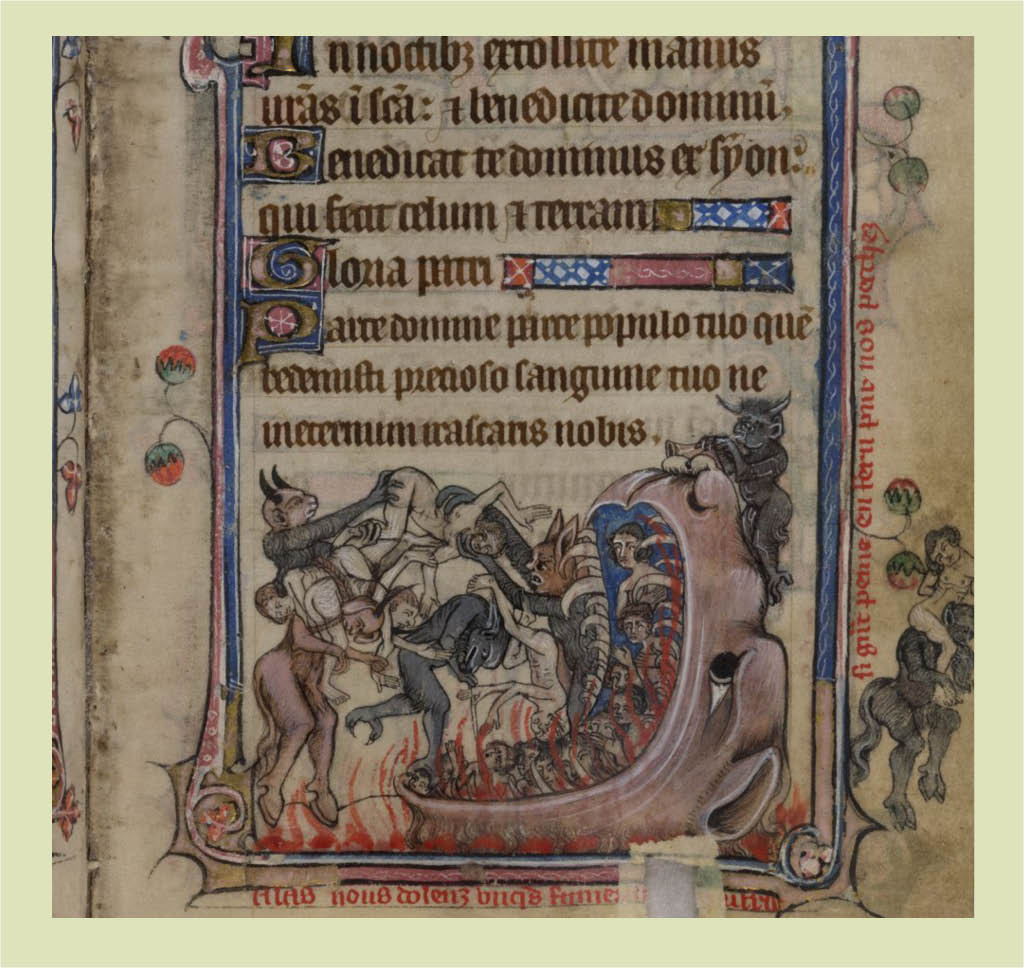 In noctib; extollite manus
ur̄as ī sc̄a: ⁊ benedicite dominū.
Benedicat te dominus ex syon:
qui fecit celum ⁊ terram
Gloria patri
Parce domine parce populo tuo quē
redemisti precioso sanguine tuo ne
ineternum irascaris nobis.
si grāt peine en fern pur nos pechez
Alas nous dolenz unqes fumes